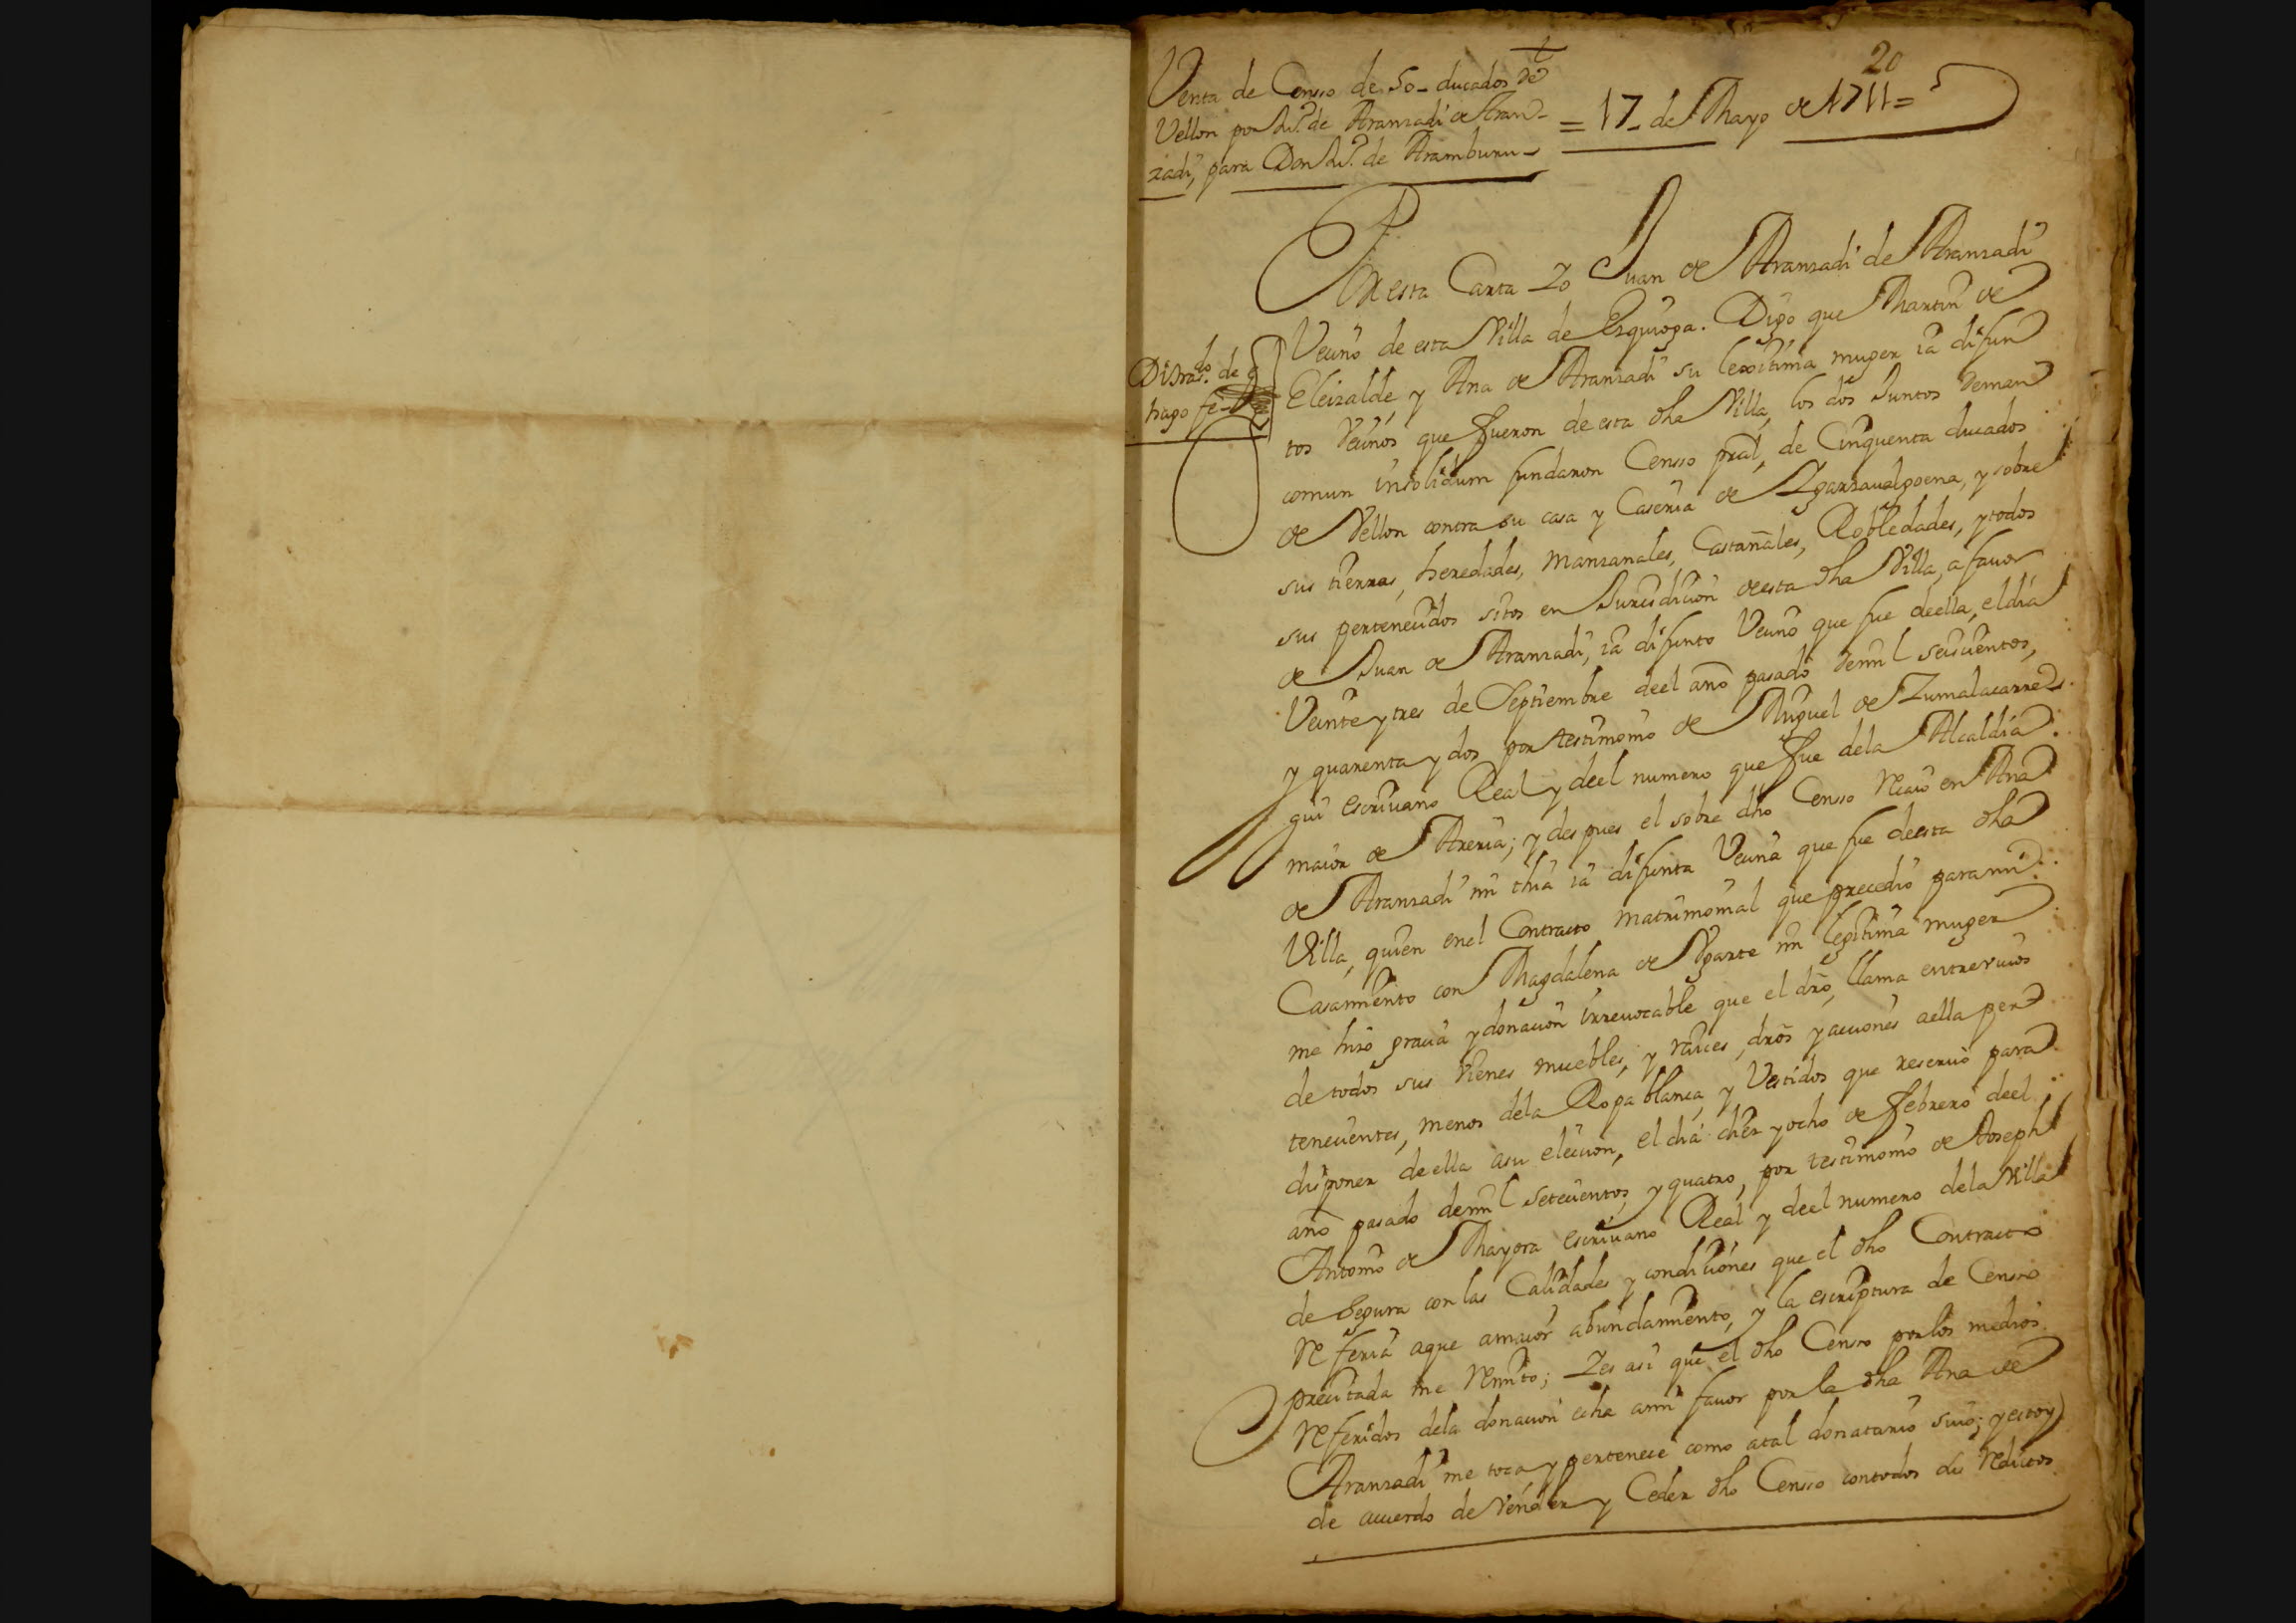 20
Venta de Censso de 50_ ducados de
Vellon por Ju.º de Aranzadi de Aran-
zadi, para Don Ju.º de Aramburu_
= 17_ de Mayo de 1711 =
Por esta Carta Yo Juan de Aranzadi de Aranzadi
Vecino de esta Villa de Ezquioga. Digo que Martin de
Eleizalde, y Ana de Aranzadi su lexitima muger ia difun
tos Vecinos que fueron de esta dha Villa, los dos Juntos deman
comun insolidum fundaron Censso pral, de Cinquenta ducados
de Vellon contra su casa y Caseria de Ygarzaualgoena, y sobre
sus tierras, heredades, Manzanales, Castañales, Robledades, y todos
sus pertenecidos sitos en Jurisdicion de esta dha Villa, a fauor
de Juan de Aranzadi, ia difunto Vecino que fue de ella, el dia
Veinte y tres de Septiembre deel año pasado demil seiscientos,
y quarenta y dos por testimonio de Miguel de Zumalacarre-
gui escriuano Real y deel numero que fue dela Alcaldia
maior de Areria; y despues el sobre dho Censso Recaio en Ana
de Aranzadi mi thia ia difunta Vecina que fue deesta dha
Villa, quien enel Contracto Matrimonial que precedio para mi
Casamiento con Magdalena de Ugarte mi legitima muger
me hizo gracia y donacion irreuocable que el dro, llama entreviuos
de todos sus Vienes muebles, y raices, dros y acciones aella per
tenecientes, menos dela Ropa blanca, y Vestidos que reseruo para
disponer de ella asu eleccion, el dia diez y ocho de febrero deel
año pasado demil setecientos, y quatro, por testimonio de Joseph
Antonio de Mayora escriuano Real y deel numero dela Villa
de Segura con las Calidades y condiciones que el dho Contracto
Referia aque amaior abundamiento, y la escriptura de Censso
precitada me Remito; Yes asi que el dho Censso por los medios
Referidos dela donacion echa ami fauor por la dha Ana de
Aranzadi me toca y pertenece como atal donatario suio; y estoy
de acuerdo de Vender y Ceder dho Censso contodos sus Reditos
hago fe